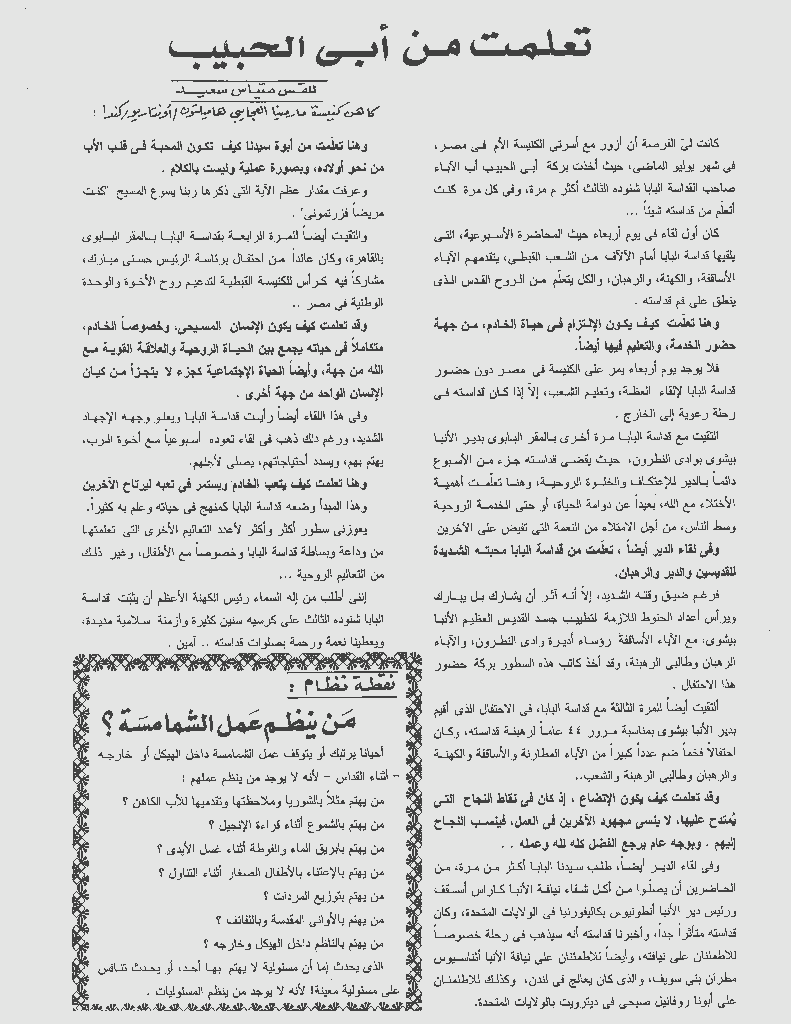 تعلمت من أبى الحبيب
للقس متياس سعيد
كاهن كنيسة مارمينا العجايبي هاميلتون/أونتاريو/كندا :
كانت لىّ الفرصة أن أزور مع أسرتي الكنيسة الأم فى مصر،
فى شهر يوليو الماضى، حيث أخذت بركة أبى الحبيب أب الآباء
صاحب القداسة البابا شنوده الثالث أكثر م مرة، وفى كل مرة كنت
أتعلّم من قداسته شيئاً ...
كان أول لقاء فى يوم أربعاء حيث المحاضرة الأسبوعية، التى
يلقيها قداسة البابا أمام الآلآف من الشعب القبطى، يتقدمهم الآباء
الأساقفة، والكهنة، والرهبان، والكل يتعلّم من الروح القدس الذى
ينطق على فم قداسته .
وهنا تعلّمت كيف يكون الإلتزام فى حياة الخادم، من جهة
حضور الخدمة، والتعليم فيها أيضاً.
فلا يوجد يوم أربعاء يمر على الكنيسة فى مصر دون حضور
قداسة البابا لإلقاء العظة، وتعليم الشعب، إلاّ إذا كان قداسته فى
رحلة رعوية إلى الخارج .
التقيت مع قداسة البابا مرة أخرى بالمقر البابوى بدير الأنبا
بيشوى بوادى النطرون، حيث يقضى قداسته جزء من الأسبوع
دائماً بالدير للإعتكاف والخلوة الروحية، وهنا تعلّمت أهمية
الأختلاء مع الله، بعيداً عن دوامة الحياة، أو حتى الخدمة الروحية
وسط الناس، من أجل الامتلاء من النعمة التى تفيض على الآخرين
وفى لقاء الدير أيضاً ، تعلّمت من قداسة البابا محبته الشديدة
للقديسين والدير والرهبان.
فرغم ضيق وقته الشديد، إلاّ أنه آثر أن يشارك بل يبارك
ويرأس أعداد الحنوط اللازمة لتطييب جسد القديس العظيم الأنبا
بيشوى، مع الآباء الأساقفة رؤساء أديرة وادى النطرون، والآباء
الرهبان وطالبى الرهبنة، وقد أخذ كاتب هذه السطور بركة حضور
هذا الاحتفال .
ألتقيت أيضاً للمرة الثالثة مع قداسة البابا، فى الاحتفال الذى أقيم
بدير الأنبا بيشوى بمناسبة مرور ٤٤ عاماً لرهبنة قداسته، وكان
احتفالاً فخماً ضم عدداً كبيراً من الآباء المطارنة والأساقفة والكهنة
والرهبان وطالبى الرهبنة والشعب..
وقد تعلمت كيف يكون الإتضاع ، إذ كان فى نقاط النجاح التى
يُمتدح عليها، لا ينسى مجهود الآخرين فى العمل، فينسب النجاح
إليهم . وبوجه عام يرجع الفضل كله لله وعمله . .
وفى لقاء الدير أيضاً، طلب سيدنا البابا أكثر من مرة، من
الحاضرين أن يصلّوا من أكل شفاء نيافة الأنبا كاراس أسقف
ورئيس دير الأنبا أنطونيوس بكاليفورنيا فى الولايات المتحدة، وكان
قداسته متأثراً جداً، وأخبرنا قداسته أنه سيذهب فى رحلة خصوصاً
للاطمئنان على نيافته، وأيضاً للاطمئنان على نيافة الأنبا أثناسيوس
مطران بني سويف، والذى كان يعالج فى لندن، وكذلك للاطمئنان
على أبونا روفائين صبحى فى ديترويت بالولايات المتحدة.
وهنا تعلّمت من أبوة سيدنا كيف تكون المحبة فى قلب الأب
من نحو أولاده، وبصورة عملية وليست بالكلام .
وعرفت مقدار عظم الآية التى ذكرها ربنا يسوع المسيح "كنت
مريضاً فزرتمونى" .
والتقيت أيضاً للمرة الرابعة بقداسة البابا بالمقر البابوى
بالقاهرة، وكان عائداً من احتفال برئاسة الرئيس حسنى مبارك،
مشاركاً فيه كرأس للكنيسة القبطية لتدعيم روح الأخوة والوحدة
الوطنية فى مصر ..
وقد تعلمت كيف يكون الإنسان المسيحى، وخصوصاً الخادم،
متكاملاً فى حياته يجمع بين الحياة الروحية والعلاقة القوية مع
الله من جهة، وأيضاً الحياة الإجتماعية كجزء لا يتجزأ من كيان
الإنسان الواحد من جهة أخرى .
وفى هذا اللقاء أيضاً رأيت قداسة البابا ويعلو وجهه الإجهاد
الشديد، ورغم ذلك ذهب فى لقاء تعوده أسبوعياً مع أخوة الرب،
يهتم بهم، ويسدد أحتياجاتهم، يصلى لأجلهم.
وهنا تعلّمت كيف يتعب الخادم ويستمر في تعبه ليرتاح الآخرين
وهذا المبدأ وضعه قداسة البابا كمنهج فى حياته وعلم به كثيراً.
يعوزنى سطور أكثر وأكثر لأعدد التعاليم الأخرى التى تعلمتها
من وداعة وبساطة قداسة البابا وخصوصاً مع الأطفال، وغير ذلك
من التعاليم الروحية ...
إننى أطلب من إله السماء رئيس الكهنة الأعظم أن يثبّت قداسة
البابا شنوده الثالث على كرسيه سنين كثيرة وأزمنة سلامية مديدة،
ويعطينا نعمة ورحمة بصلوات قداسته .. آمين .
نقطة نظام :
مَن ينظم عَمل الشمامسَة ؟
أحيانا يرتبك أو يتوقف عمل الشمامسة داخل الهيكل أو خارجه
- أثناء القداس - لأنه لا يوجد من ينظم عملهم :
من يهتم مثلاً بالشوريا وملاحظتها وتقديمها للأب الكاهن ؟
من يهتم بالشموع أثناء قراءة الإنجيل ؟
من يهتم بابريق الماء والفوطة أثناء غسل الأيدى ؟
من يهتم بالإعتناء بالأطفال الصغار أثناء التناول ؟
من يهتم بتوزيع المردات ؟
من يهتم بالأوانى المقدسة وباللفائف ؟
من يهتم بالناظم داخل الهيكل وخارجه ؟
الذى يحدث إما أن مسئولية لا يهتم بها أحد، أو يحدث تنافس
على مسئولية معينة! لأنه لا يوجد من ينظم المسئوليات .